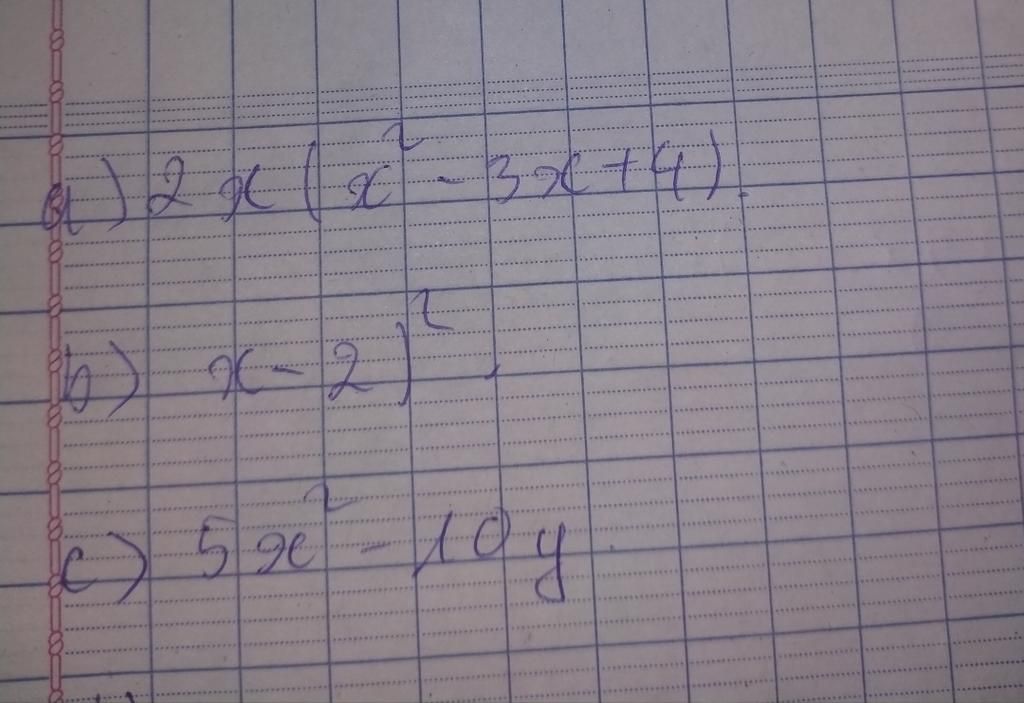 a) 2x(x² - 3x + 4).
b) x - 2)².
c) 5x² - 10y